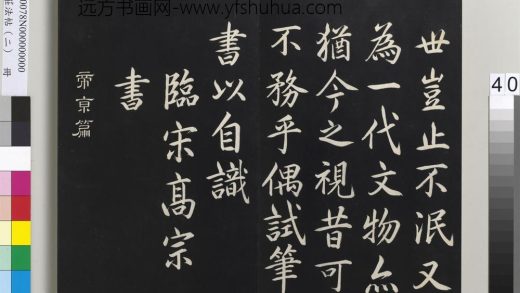 远方书画网-www.yfshuhua.com
世豈止不泯又
為一代文物亦
猶今之視昔可
不務乎偶試筆
書以自識
臨宋高宗
書
帝京篇
0078N000000000
法帖(二) 冊
40